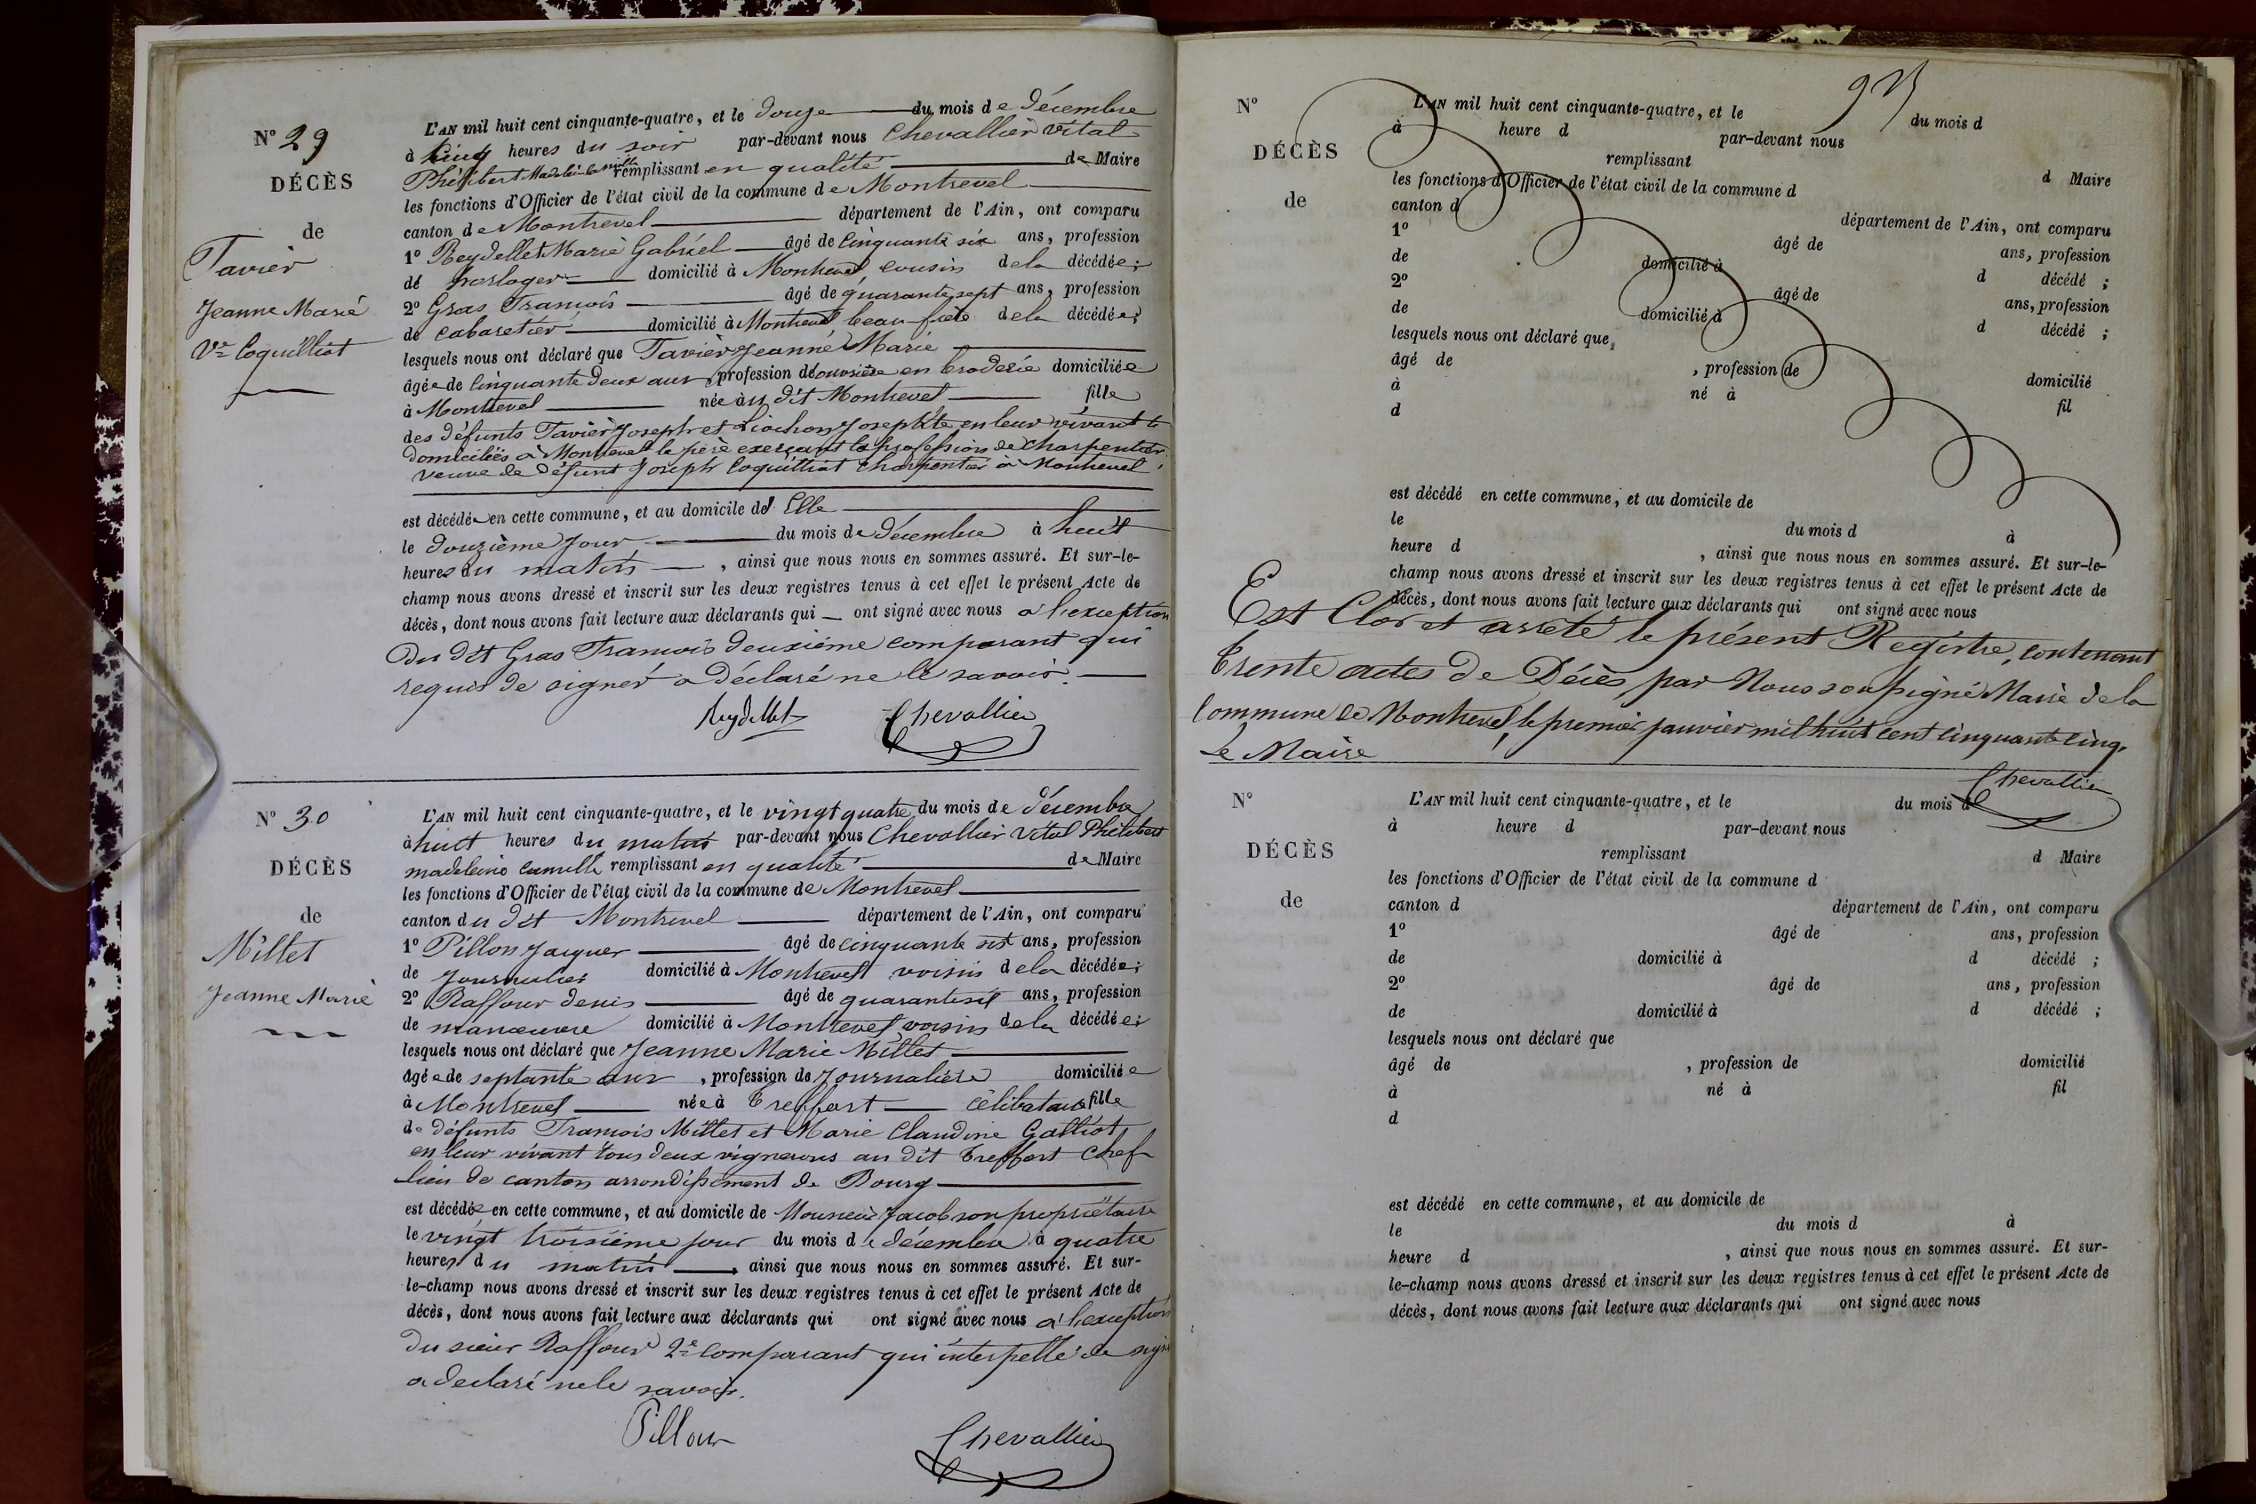 N° 29
DÉCÈS
de
Tavier
Jeanne Marie
Vve Coquilliat
L'AN mil huit cent cinquante-quatre, et le douze du mois de décembre
à cinq heures du soir par-devant nous Chevallier Vital
Philibert Madeleine remplissant en qualité de Maire
les fonctions d'Officier de l'état civil de la commune de Montrevel
canton de Montrevel département de l'Ain, ont comparu
1° Reydellet Marie Gabriel âgé de cinquante six ans, profession
de horloger domicilié à Montrevel cousin de la décédée;
2° Gras François âgé de quarante sept ans, profession
de cabaretier domicilié à Montrevel beau frère de la décédée;
lesquels nous ont déclaré que Tavier Jeanne Marie
âgée de cinquante deux ans, profession d'ouvrière en broderie domiciliée
à Montrevel née au dit Montrevel fille
des défunts Tavier Joseph et Liochon Josephte en leur vivant
domiciliés à Montrevel le père exerçant la profession de charpentier
veuve de défunt Joseph Coquilliat charpentier à Montrevel,
est décédée en cette commune, et au domicile d'Elle
le douzième jour du mois de décembre à huit
heures du matin, ainsi que nous nous en sommes assuré. Et sur-le-
champ nous avons dressé et inscrit sur les deux registres tenus à cet effet le présent Acte de
décès, dont nous avons fait lecture aux déclarants qui ont signé avec nous à l'exception
du dit Gras François deuxième comparant qui
requis de signer a déclaré ne le savoir.
Reydellet Chevallier
N° 30
DÉCÈS
de
Millet
Jeanne Marie
L'AN mil huit cent cinquante-quatre, et le vingt quatre du mois de décembre
à huit heures du matin par-devant nous Chevallier Vital Philibert
madeleine camille remplissant en qualité de Maire
les fonctions d'Officier de l'état civil de la commune de Montrevel
canton du dit Montrevel département de l'Ain, ont comparu
1° Pillon Jacques âgé de cinquante six ans, profession
de Journalier domicilié à Montrevel voisin de la décédée;
2° Raffour denis âgé de quarante six ans, profession
de manœuvre domicilié à Montrevel voisin de la décédée;
lesquels nous ont déclaré que Jeanne Marie Millet
âgée de septante ans, profession de Journalière domiciliée
à Montrevel née à Treffort célibataire fille
de défunts François Millet et Marie Claudine Galliot,
en leur vivant tous deux vignerons au dit Treffort chef
lieu de canton arrondissement de Bourg
est décédée en cette commune, et au domicile de Monsieur Jacob son propriétaire
le vingt troisième jour du mois de décembre à quatre
heures du matin, ainsi que nous nous en sommes assuré. Et sur-
le-champ nous avons dressé et inscrit sur les deux registres tenus à cet effet le présent Acte de
décès, dont nous avons fait lecture aux déclarants qui ont signé avec nous à l'exception
du sieur Raffour 2e comparant qui interpellé de
a déclaré ne le savoir.
Pillon Chevallier
N°
DÉCÈS
de
L'AN mil huit cent cinquante-quatre, et le du mois d
à heure d par-devant nous
remplissant d Maire
les fonctions d'Officier de l'état civil de la commune d
canton d département de l'Ain, ont comparu
1° âgé de ans, profession
de domicilié à d décédé ;
2° âgé de ans, profession
de domicilié à d décédé ;
lesquels nous ont déclaré que
âgé de , profession de domicilié
à né à fil
d
est décédé en cette commune, et au domicile de
le du mois d à
heure d , ainsi que nous nous en sommes assuré. Et sur-le-
champ nous avons dressé et inscrit sur les deux registres tenus à cet effet le présent Acte de
décès, dont nous avons fait lecture aux déclarants qui ont signé avec nous
Est Clos et arrêté le présent Registre, contenant
trente actes de Décès, par Nous soussigné Maire de la
Commune de Montrevel, le premier janvier mil huit cent cinquante cinq.
le Maire
Chevallier
N°
DÉCÈS
de
L'AN mil huit cent cinquante-quatre, et le du mois d
à heure d par-devant nous
remplissant d Maire
les fonctions d'Officier de l'état civil de la commune d
canton d département de l'Ain, ont comparu
1° âgé de ans, profession
de domicilié à d décédé ;
2° âgé de ans, profession
de domicilié à d décédé ;
lesquels nous ont déclaré que
âgé de , profession de domicilié
à né à fil
d
est décédé en cette commune, et au domicile de
le du mois d à
heure d , ainsi que nous nous en sommes assuré. Et sur-
le-champ nous avons dressé et inscrit sur les deux registres tenus à cet effet le présent Acte de
décès, dont nous avons fait lecture aux déclarants qui ont signé avec nous